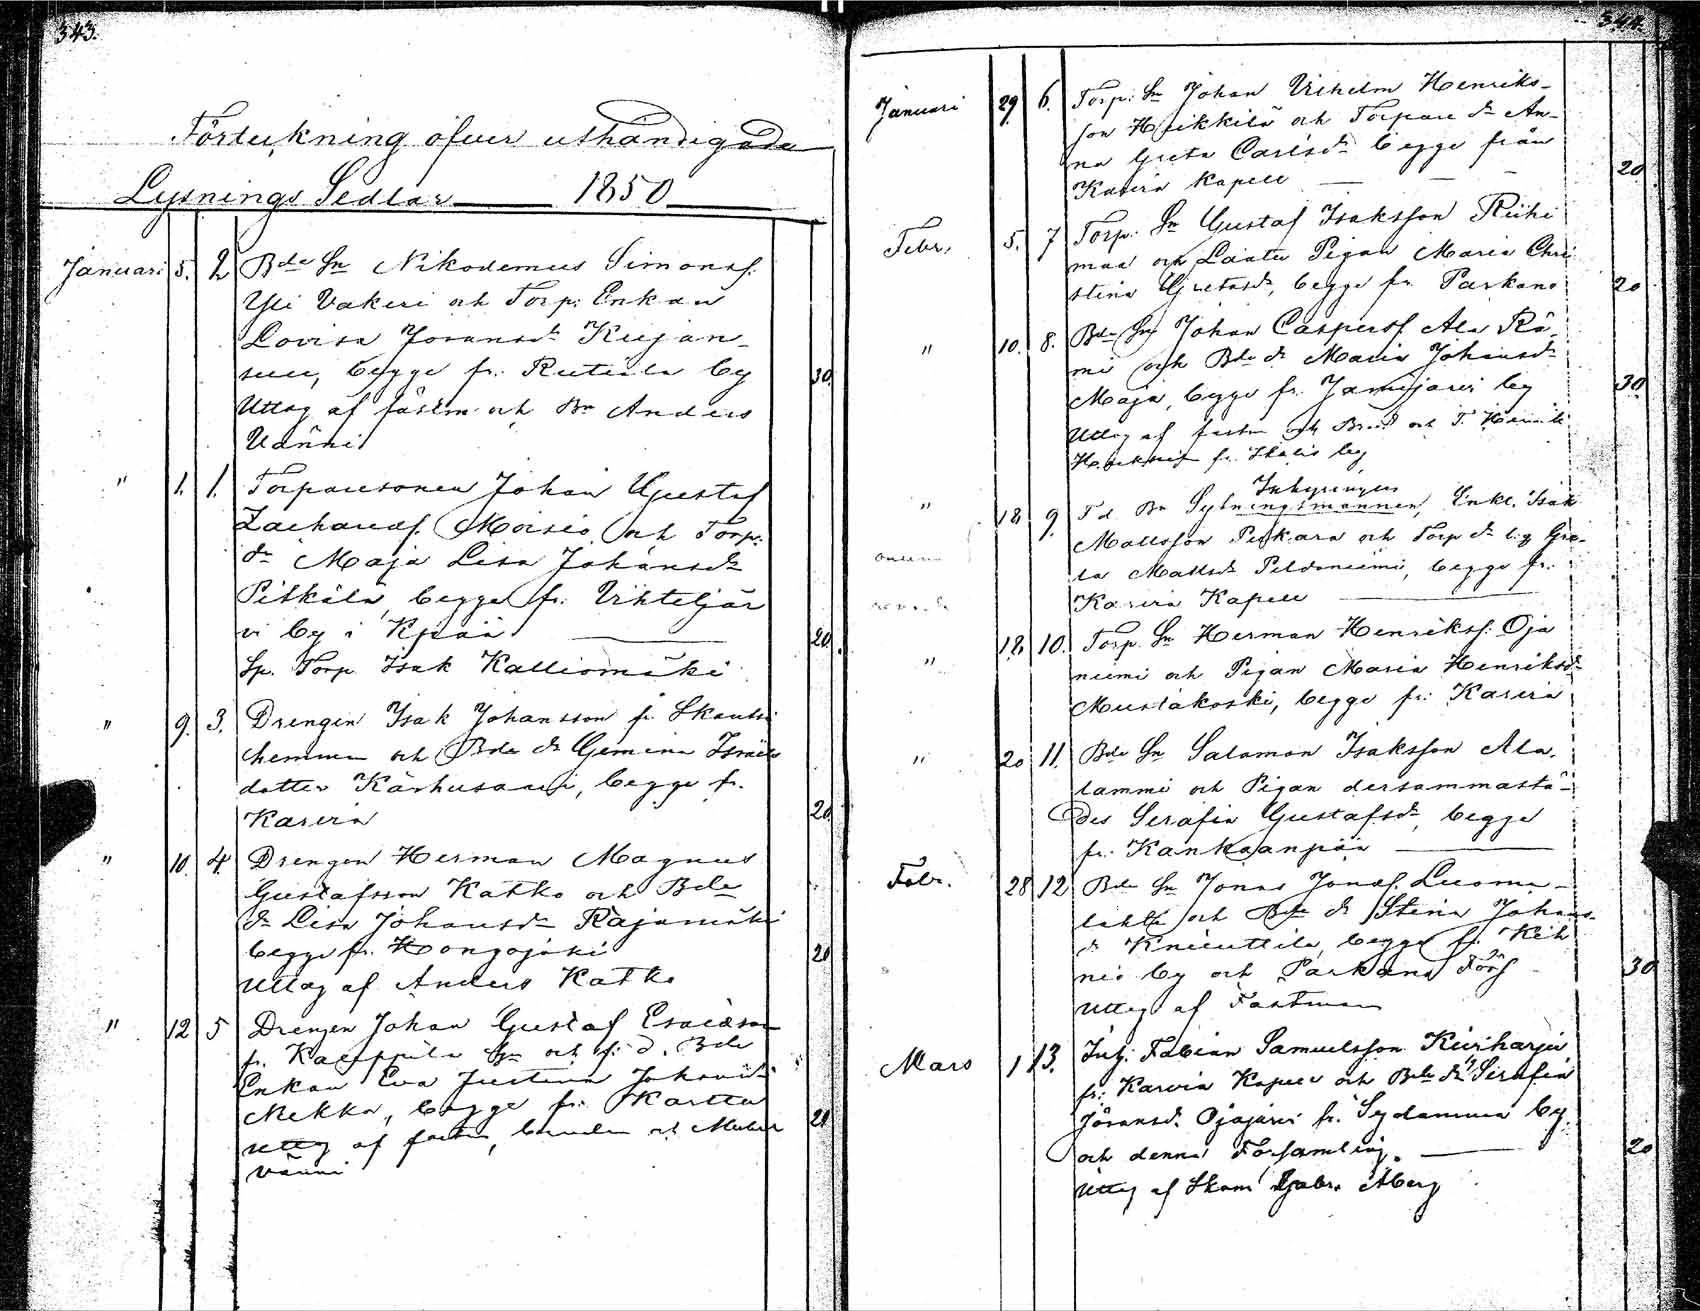 343.
Förteckning öfver uthändigade
Lysnings Sedlar 1850
Januari 5. 2 Bde Sn Nikodemus Simonsf.
Yli Vakeri och Torp: Enkan
Lovisa Joransdr Kujan-
suu, begge fr. Rutiila by 30.
Uttog af fästm. och Bn Anders
Vänni
" 1. 1. Torparesonen Johan Gustaf
Zachariasf. Moisio och Torp:
dr Maja Lisa Johansdr
Pitkälä, begge fr. Vihteljär
vi by i Kjkää 20.
Sp. Torp Isak Kalliomäki
" 9. 3. Drengen Isak Johansson fr.
hemman och Bde dr Gemina Israels
dotter Karhusaari, begge fr.
Karvia 20.
" 10. 4. Drengen Herman Magnus
Gustafsson Katko och Bde
dr Lisa Johansdr Rajamäki
begge fr. Hongojoki 20
Uttog af Anders Katko
" 12 5 Drengen Johan Gustaf Esaiasson
fr. by och f. d. Bde
Enkan Eva Justina Johansdr
Mekka, begge fr. Kartta 20
Uttog af och
vänni
344.
Januari 29. 6. Torp: Sn Johan Vilhelm Henriks-
son Heikkilä och Torpare dr An-
na Greta Carlsdr begge från
Karvia kapell 20.
Febr. 5. 7 Torp: Sn Gustaf Isaksson Riihi
maa och Pigan Maria Chri
stina Gustafsdr, begge fr. Parkano 20
" 10. 8. Bde Sn Johan Caspersf. Ala Rä-
mi och Bde dr Maria Johansdr
Maja, begge fr. Jämijärvi by 30.
Uttog af fästm och och T. Henrik
fr. Skalis by
Inhysingen
" 18 9. F d Bn Sytningsmannen, Enkl. Isak
Mattsson Peskara och Torp dr Gre-
ta Mattsdr Peldoniemi, begge fr.
Karvia Kapell
" 18 10. Torp. Sn Herman Henriksf. Oja
niemi och Pigan Maria Henriksdr
Mustakoski, begge fr: Karvia
" 20 11. Bde Sn Salomon Isaksson Ala
lammi och Pigan dersammastä-
des Serafia Gustafsdr, begge
fr. Kankaanpää
Febr. 28 12 Bde Sn Jonas Jonasf. Luoma-
lahti och Bde dr Stina Johans-
dr Knuuttila, begge fr. Kih
niö by och Parkano Förs 30
Uttog af Fästman
Mars 1 13. Inh: Fabian Samuelsson Kiviharju
fr: Karvia Kapell och Bde dr Serafia
Jöransdr Ojajärvi fr. Sydanmaa by
och denna Församling. 20
Uttog af Skom Gabr. Åberg